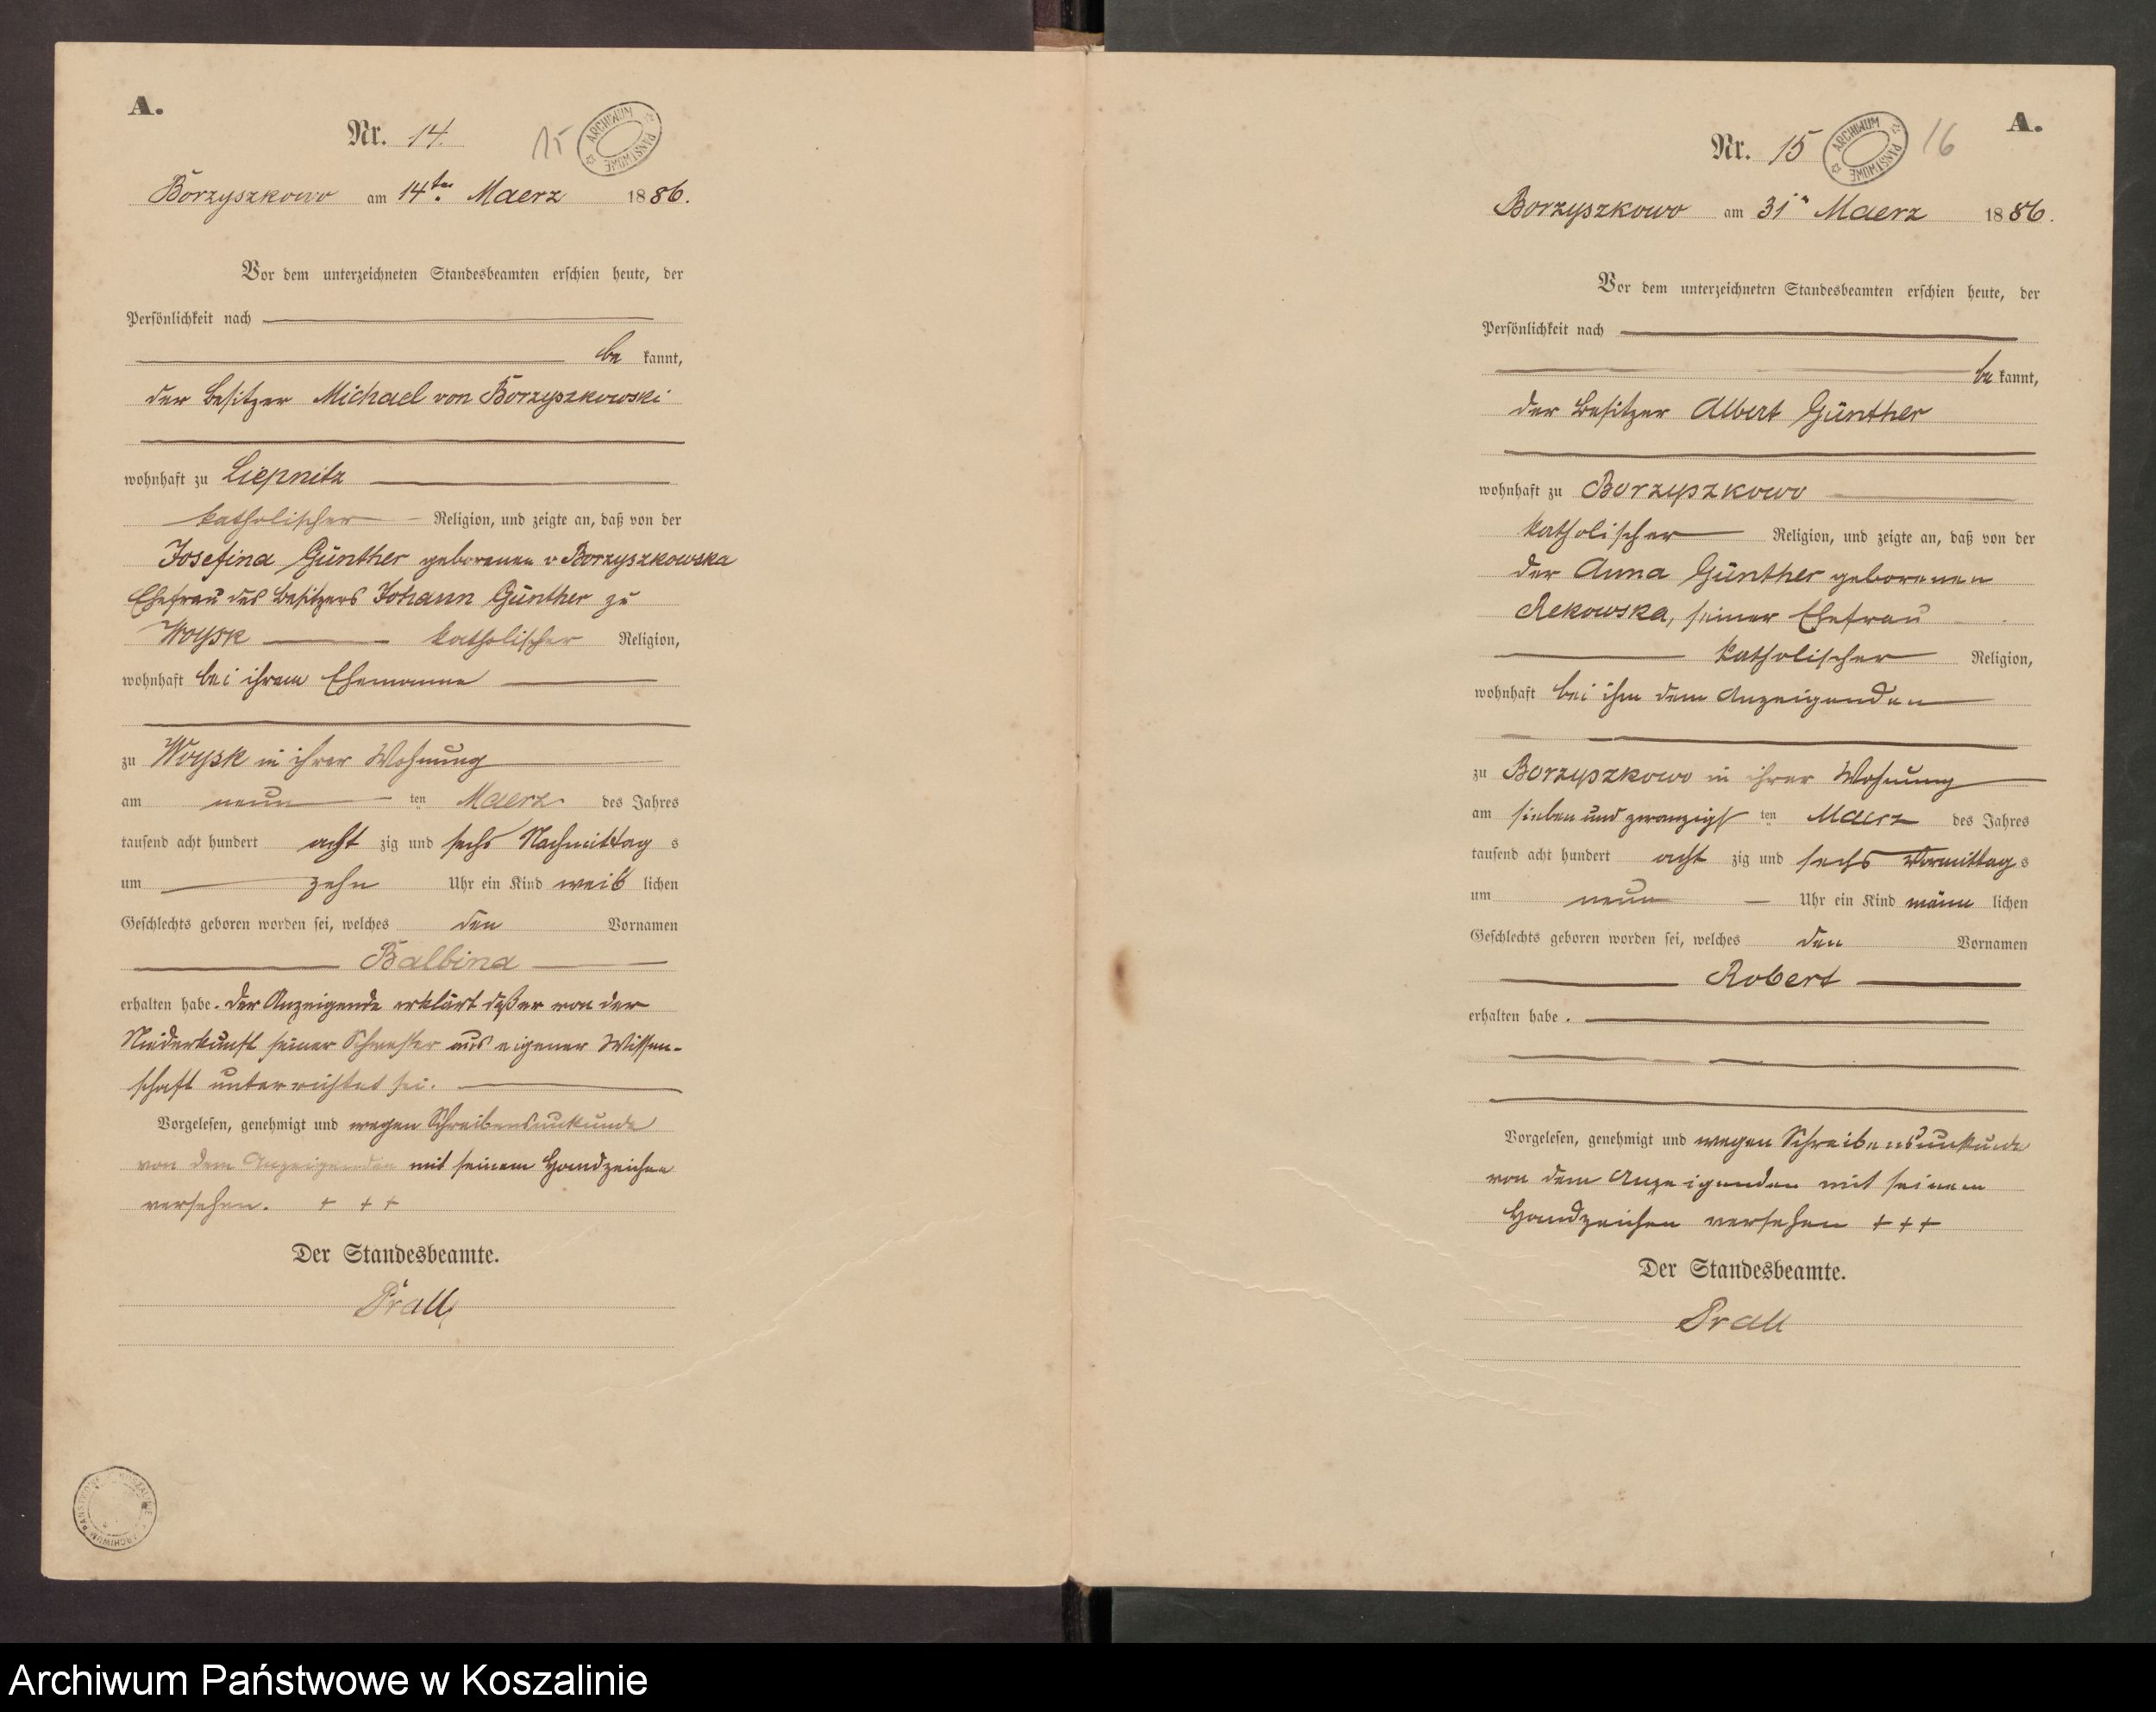 A.
Nr. 14.
15
ARCHIWUM PAŃSTWOWE
Borzyszkowo am 14ten Maerz 1886.
Vor dem unterzeichneten Standesbeamten erschien heute, der
Persönlichkeit nach
be kannt,
der Besitzer Michael von Borzyszkowski
wohnhaft zu Liepnitz
katholischer Religion, und zeigte an, daß von der
Josefina Günther geborenen v Borzyszkowska
Ehefrau des Besitzers Johann Günther zu
Woysk katholischer Religion,
wohnhaft bei ihrem Ehemanne
zu Woysk in ihrer Wohnung
am neun ten Maerz des Jahres
tausend acht hundert acht zig und sechs Nachmittag s
um zehn Uhr ein Kind weib lichen
Geschlechts geboren worden sei, welches den Vornamen
Balbina
erhalten habe. Der Anzeigende erklärt daß er von der
Niederkunft seiner Schwester aus eigener Wissen-
schaft unterrichtet sei.
Vorgelesen, genehmigt und wegen Schreibensunkunde
von dem Anzeigenden mit seinem Handzeichen
versehen. + + +
Der Standesbeamte.
Prall
A.
Nr. 15
ARCHIWUM PAŃSTWOWE
16
Borzyszkowo am 31n Maerz 1886.
Vor dem unterzeichneten Standesbeamten erschien heute, der
Persönlichkeit nach
be kannt,
der Besitzer Albert Günther
wohnhaft zu Borzyszkowo
katholischer Religion, und zeigte an, daß von der
der Anna Günther geborenen
Rekowska, seiner Ehefrau
katholischer Religion,
wohnhaft bei ihm dem Anzeigenden
zu Borzyszkowo in ihrer Wohnung
am sieben und zwanzigs ten Maerz des Jahres
tausend acht hundert acht zig und sechs Vormittag s
um neun Uhr ein Kind männ lichen
Geschlechts geboren worden sei, welches den Vornamen
Robert
erhalten habe.
Vorgelesen, genehmigt und wegen Schreibensunkunde
von dem Anzeigenden mit seinem
Handzeichen versehen + + +
Der Standesbeamte.
Prall
Archiwum Państwowe w Koszalinie